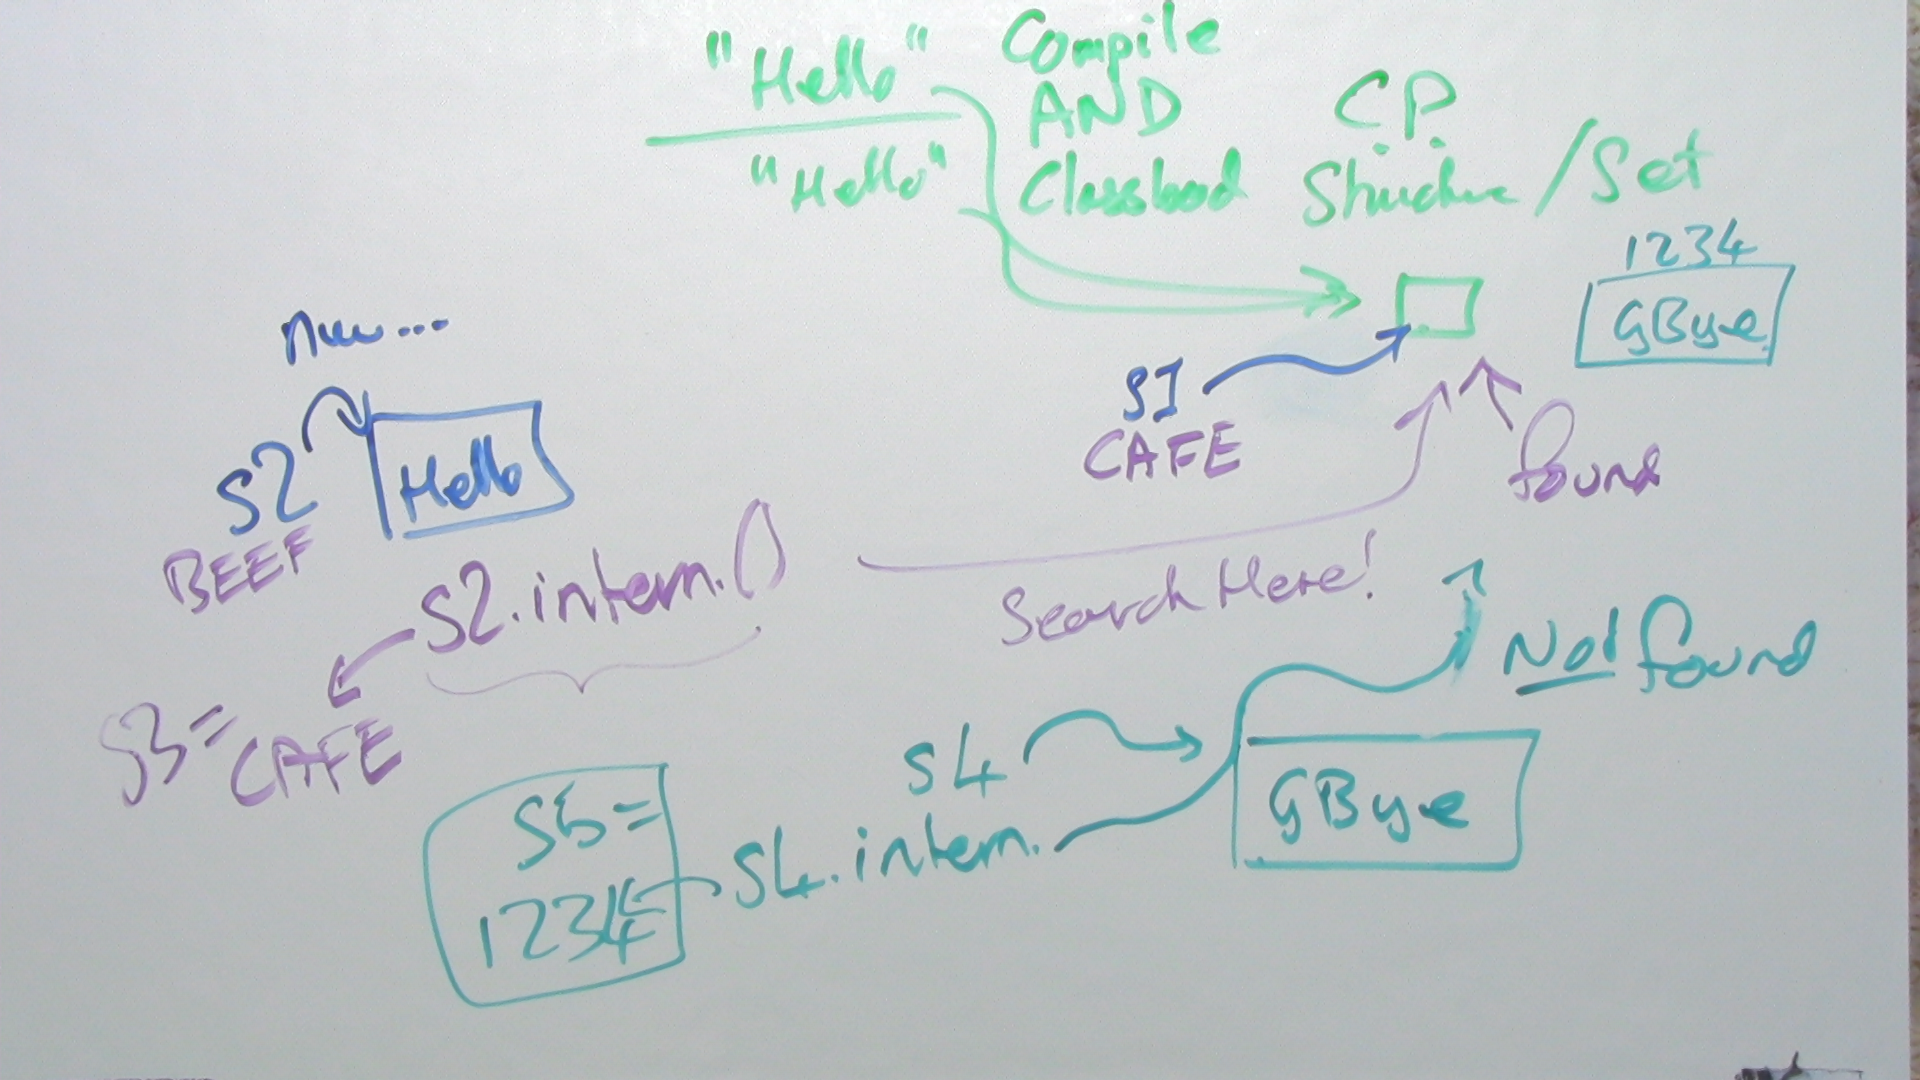 "Hello"
"Hello"
Compile
AND
Classload
C.P.
Structure / Set
1234
GBye
new...
S2
Hello
BEEF
S1
CAFE
found
S2.intern.()
Search Here!
S3 =
CAFE
Not found
S4
GBye
S4.intern.
S5 =
1234